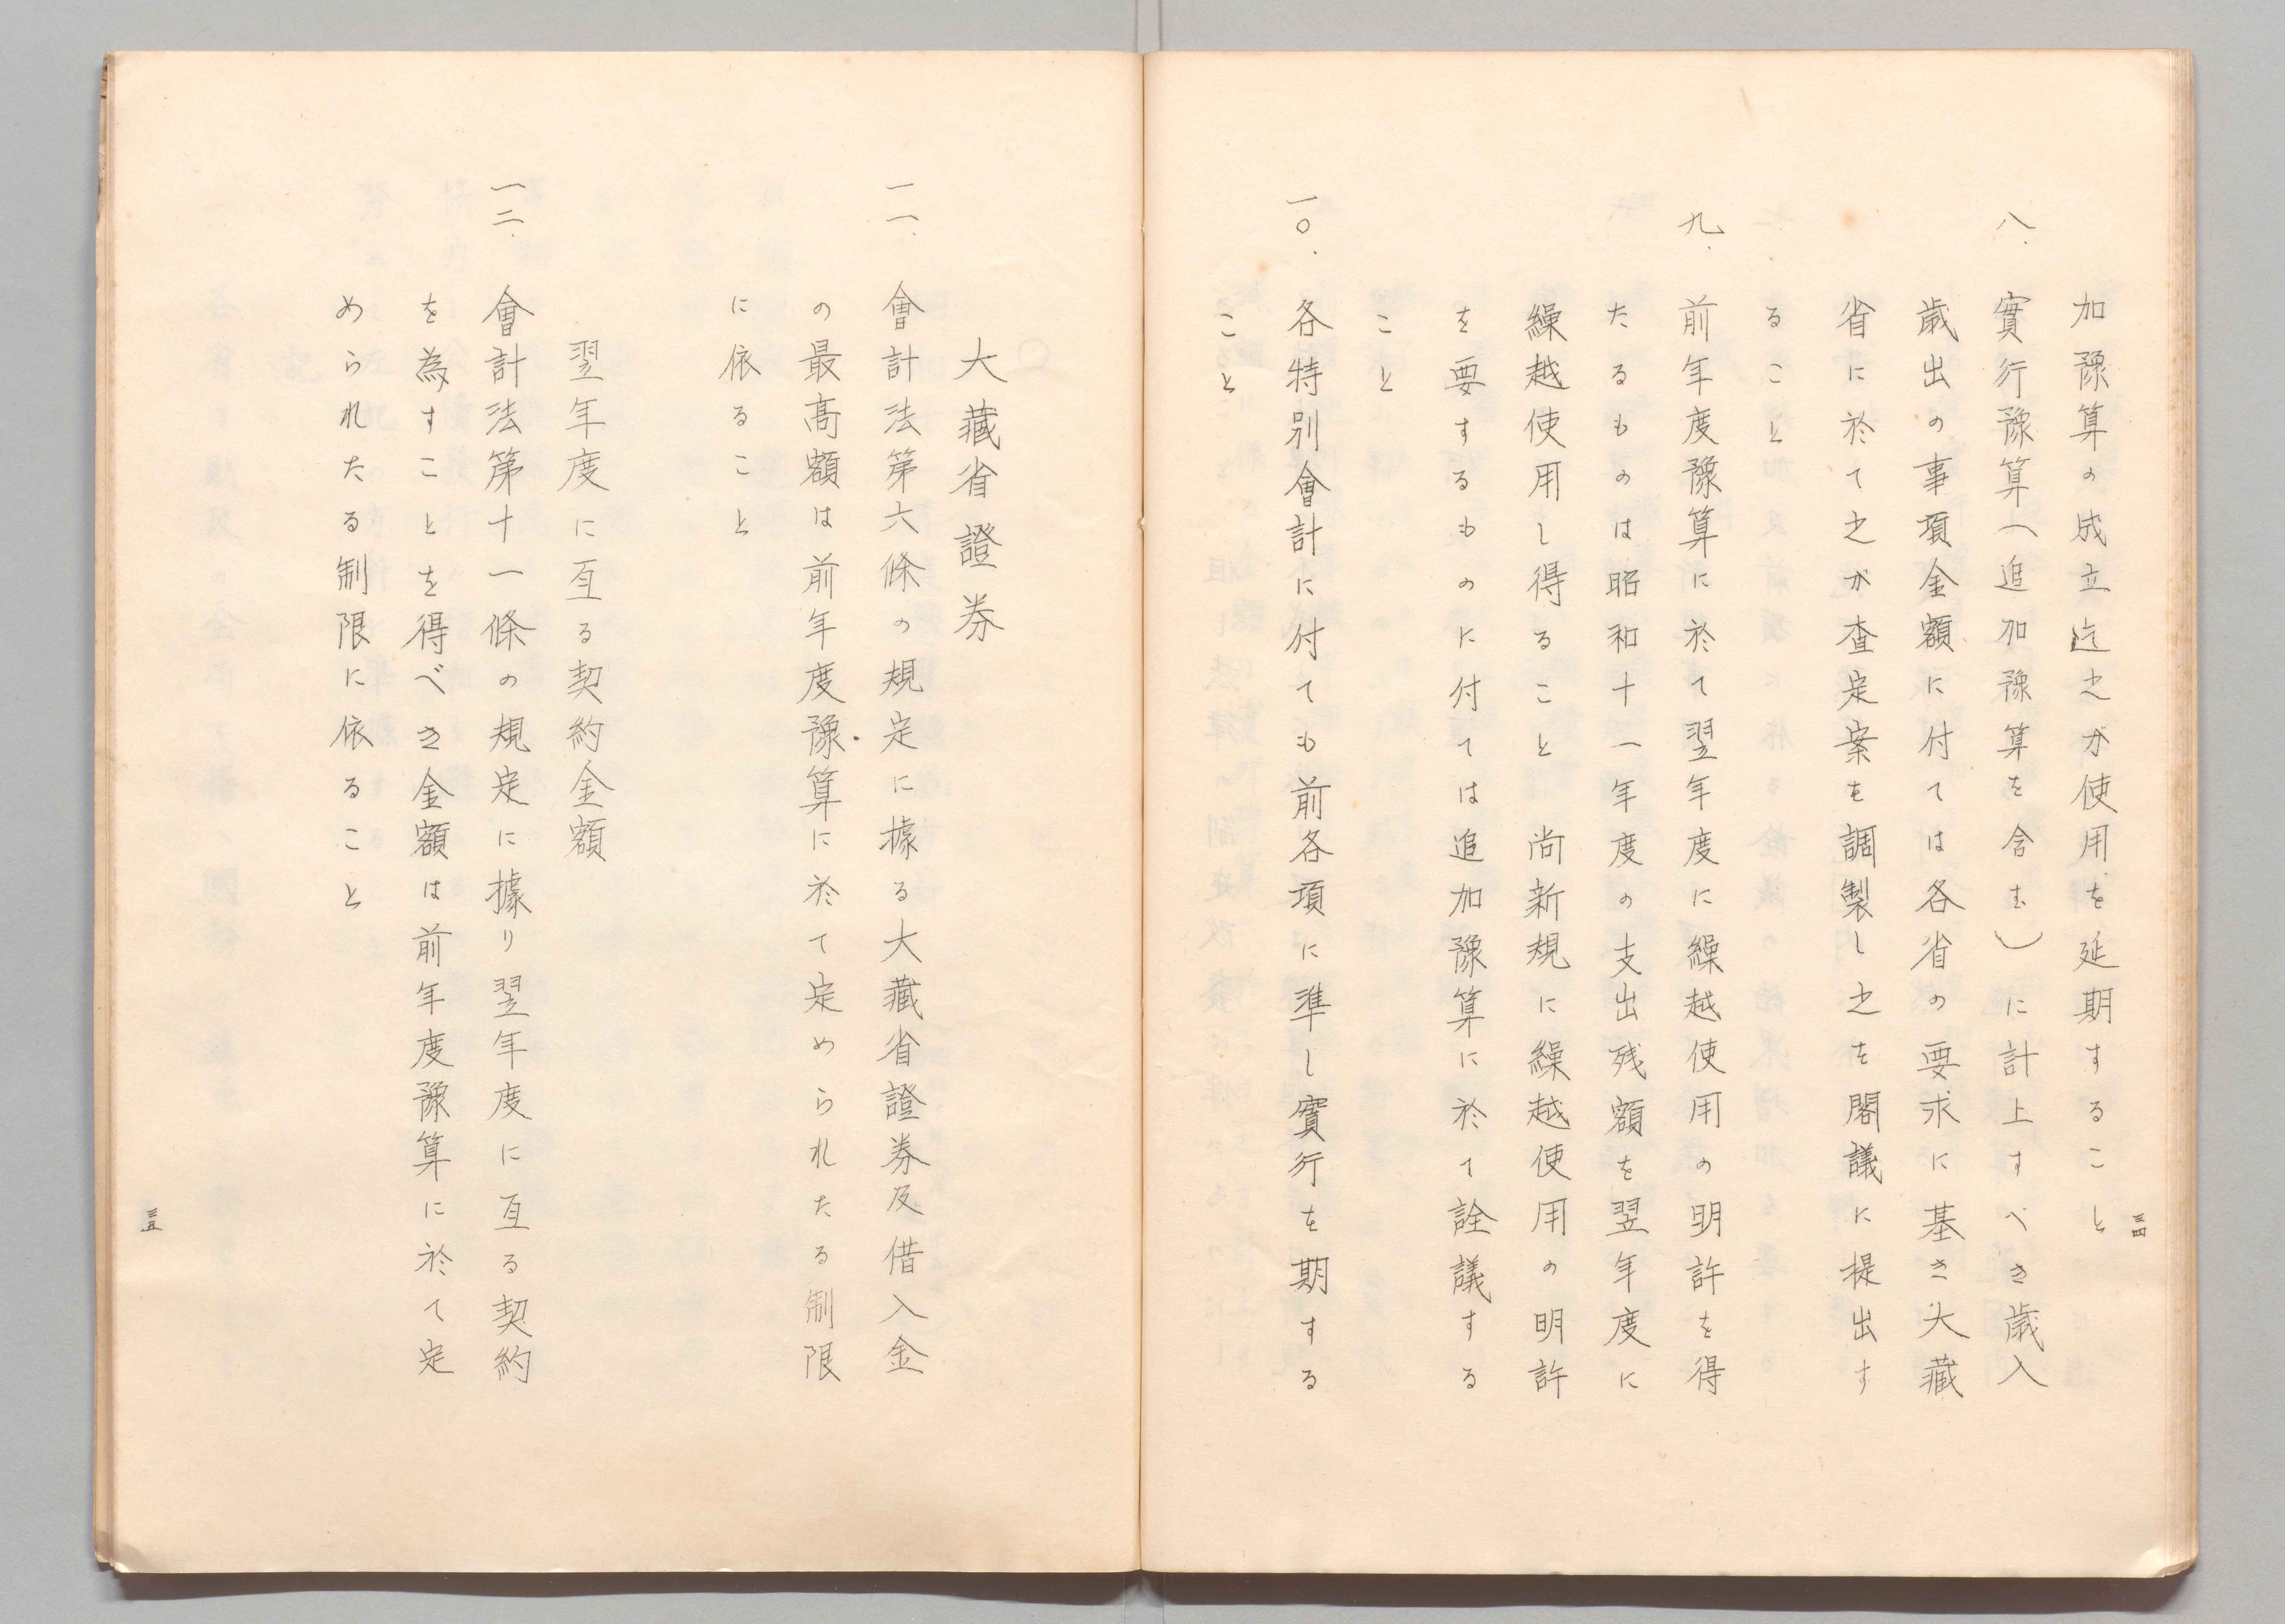 三四
加豫算の成立迄之が使用を延期すること
八.實行豫算(追加豫算を含む)に計上すべき歳入
歳出の事項金額に付ては各省の要求に基き大藏
省に於て之が査定案を調製し之を閣議に提出す
ること
九.前年度豫算に於て翌年度に繰越使用の明許を得
たるものは昭和十一年度の支出残額を翌年度に
繰越使用し得ること 尚新規に繰越使用の明許
を要するものに付ては追加豫算に於て詮議する
こと
一〇.各特別會計に付ても前各項に準し實行を期する
こと
大藏省證券
一一.會計法第六條の規定に據る大藏省證券及借入金
の最高額は前年度豫算に於て定められたる制限
に依ること
翌年度に亙る契約金額
一二.會計法第十一條の規定に據り翌年度に亙る契約
を為すことを得べき金額は前年度豫算に於て定
められたる制限に依ること
三五